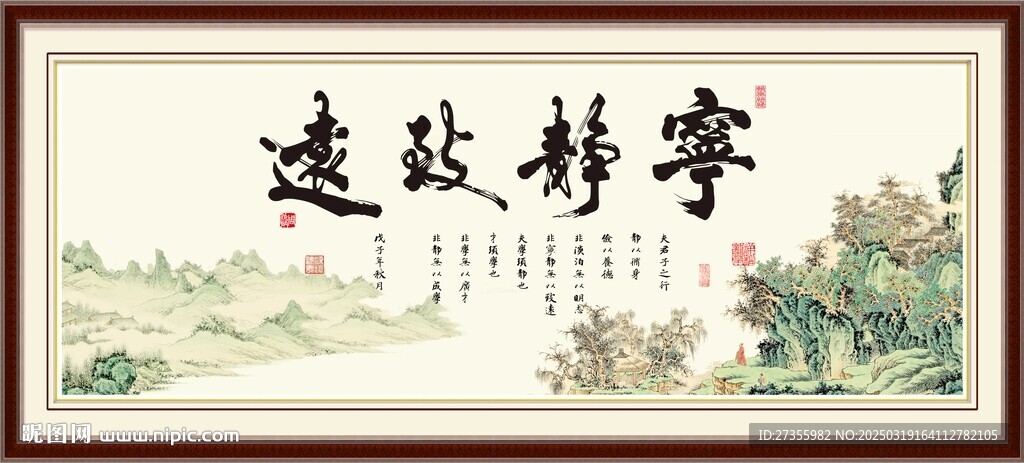 寧靜致遠
夫君子之行
靜以脩身
儉以養德
非淡泊無以明志
非寧靜無以致遠
夫學須靜也
才須學也
非學無以廣才
非靜無以成學
戊子年秋月
昵图网 www.nipic.com
ID:27355982 NO:20250319164112782105